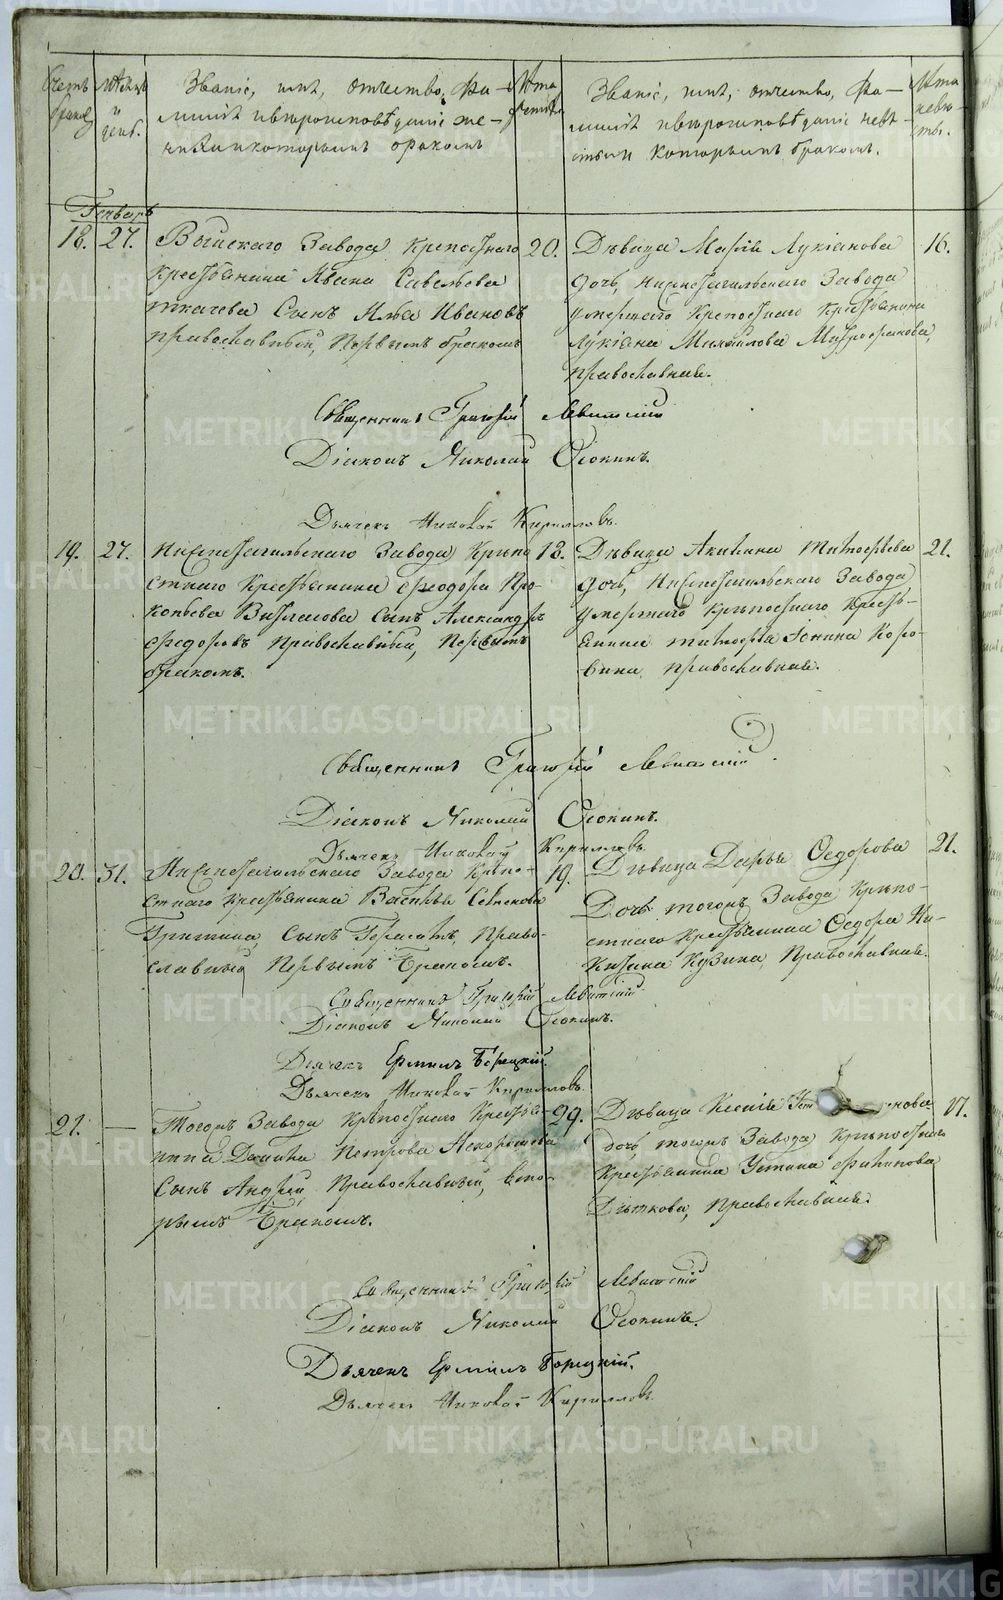 Счетъ браковъ
Мѣсяцъ и день.
Званіе, имя, отчество, фа-
милія и вѣроисповѣданіе же-
ниха и которымъ бракомъ
Лѣта жениха
Званіе, имя, отчество, фа-
милія и вѣроисповѣданіе невѣ-
сты и которымъ бракомъ.
Лѣта невѣ-
сты.
Генварь
18. 27.
Выйскаго Завода крепостнаго
крестьянина Ивана Савельева
ткачева Сынъ Илья Ивановъ
православный, Первымъ бракомъ
20.
Дѣвица Марія Лукіанова
дочь, Нижнетагильскаго Завода
умершаго Крепостнаго Крестьянина
Лукіана Михайлова Митрофанова,
православная.
16.
Священникъ Григорій Левитскій
Діаконъ Николай Осокинъ.
Дьячекъ Николай Кирилловъ.
19. 27.
Нижнетагильскаго Завода Крѣпо
стнаго Крестьянина Феодора Про-
копьева Сынъ Александръ
Федоровъ Православный, Первымъ
бракомъ.
18.
Дѣвица Акилина Тимофѣева
дочь, Нижнетагильскаго Завода
умершаго крѣпостнаго Кресть-
янина Тимофѣя Іонина Коро-
вина, православная.
21.
Священникъ Григорій Левитскій
Діаконъ Николай Осокинъ.
Дьячекъ Николай Кирилловъ
20. 31.
Нижнетагильскаго Завода Крѣпо-
стнаго крестьянина Василья Семенова
Гришина, сынъ Герасимъ, Право-
славный Первымъ Бракомъ.
19.
Дѣвица Дарья Федорова
Дочь тогожъ Завода Крѣпо-
стнаго Крестьянина Федора Ни-
китина Кузина, Православная.
21.
Священникъ Григорій Левитскій
Діаконъ Николай Осокинъ.
Дьячекъ Ермилъ Борецкій.
Дьячекъ Николай Кирилловъ.
21. —
Тогожъ Завода Крѣпостнаго Кресть-
янина Данила Петрова
Сынъ Андрей Православный, вто-
рымъ Бракомъ.
29.
Дѣвица Ксенія
дочь, тогожъ Завода Крѣпостнаго
Крестьянина Устина Филипова
Дѣткова, Православная.
17.
Священникъ Григорій Левитскій
Діаконъ Николай Осокинъ.
Дьячекъ Ермилъ Борецкій.
Дьячекъ Николай Кирилловъ
METRIKI.GASO-URAL.RU